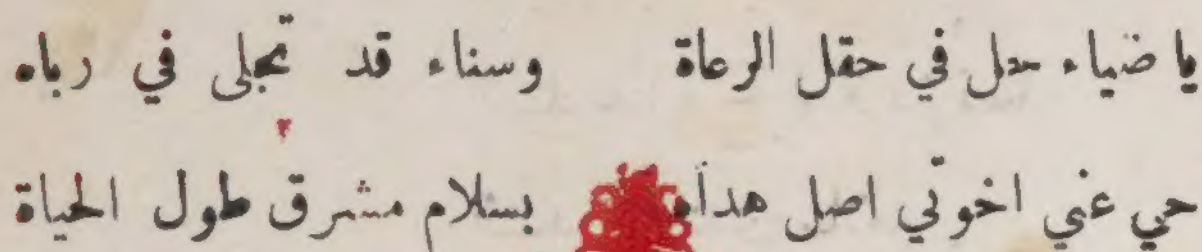 يا ضياء حل في حقل الرعاة وسناء قد تجلى في رباه
حي عني اخوتي اصل هداه بسلام مشرق طول الحياة